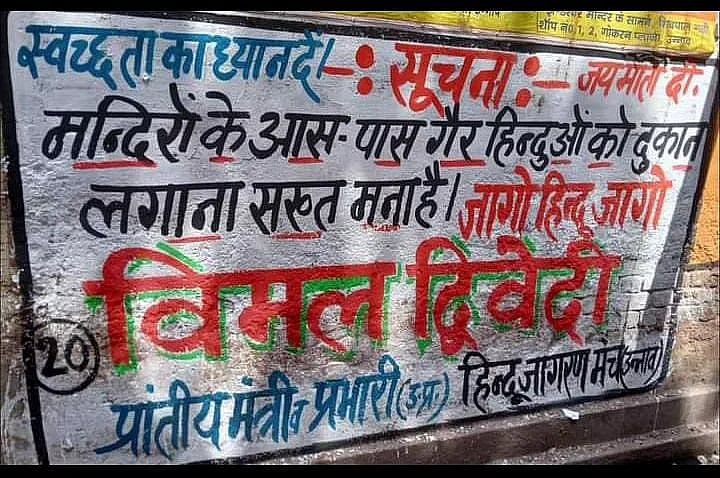 शॉप नं0 1, 2, गोकरन प्लाजा, उन्नाव
स्वच्छता का ध्यान दें। -: सूचना :- जय माता दी.
मन्दिरों के आस-पास गैर हिन्दुओं को दुकान
लगाना सख्त मना है। जागो हिन्दू जागो
विमल द्विवेदी
20
प्रांतीय मंत्री व प्रभारी (उ.प्र.) हिन्दू जागरण मंच (उन्नाव)